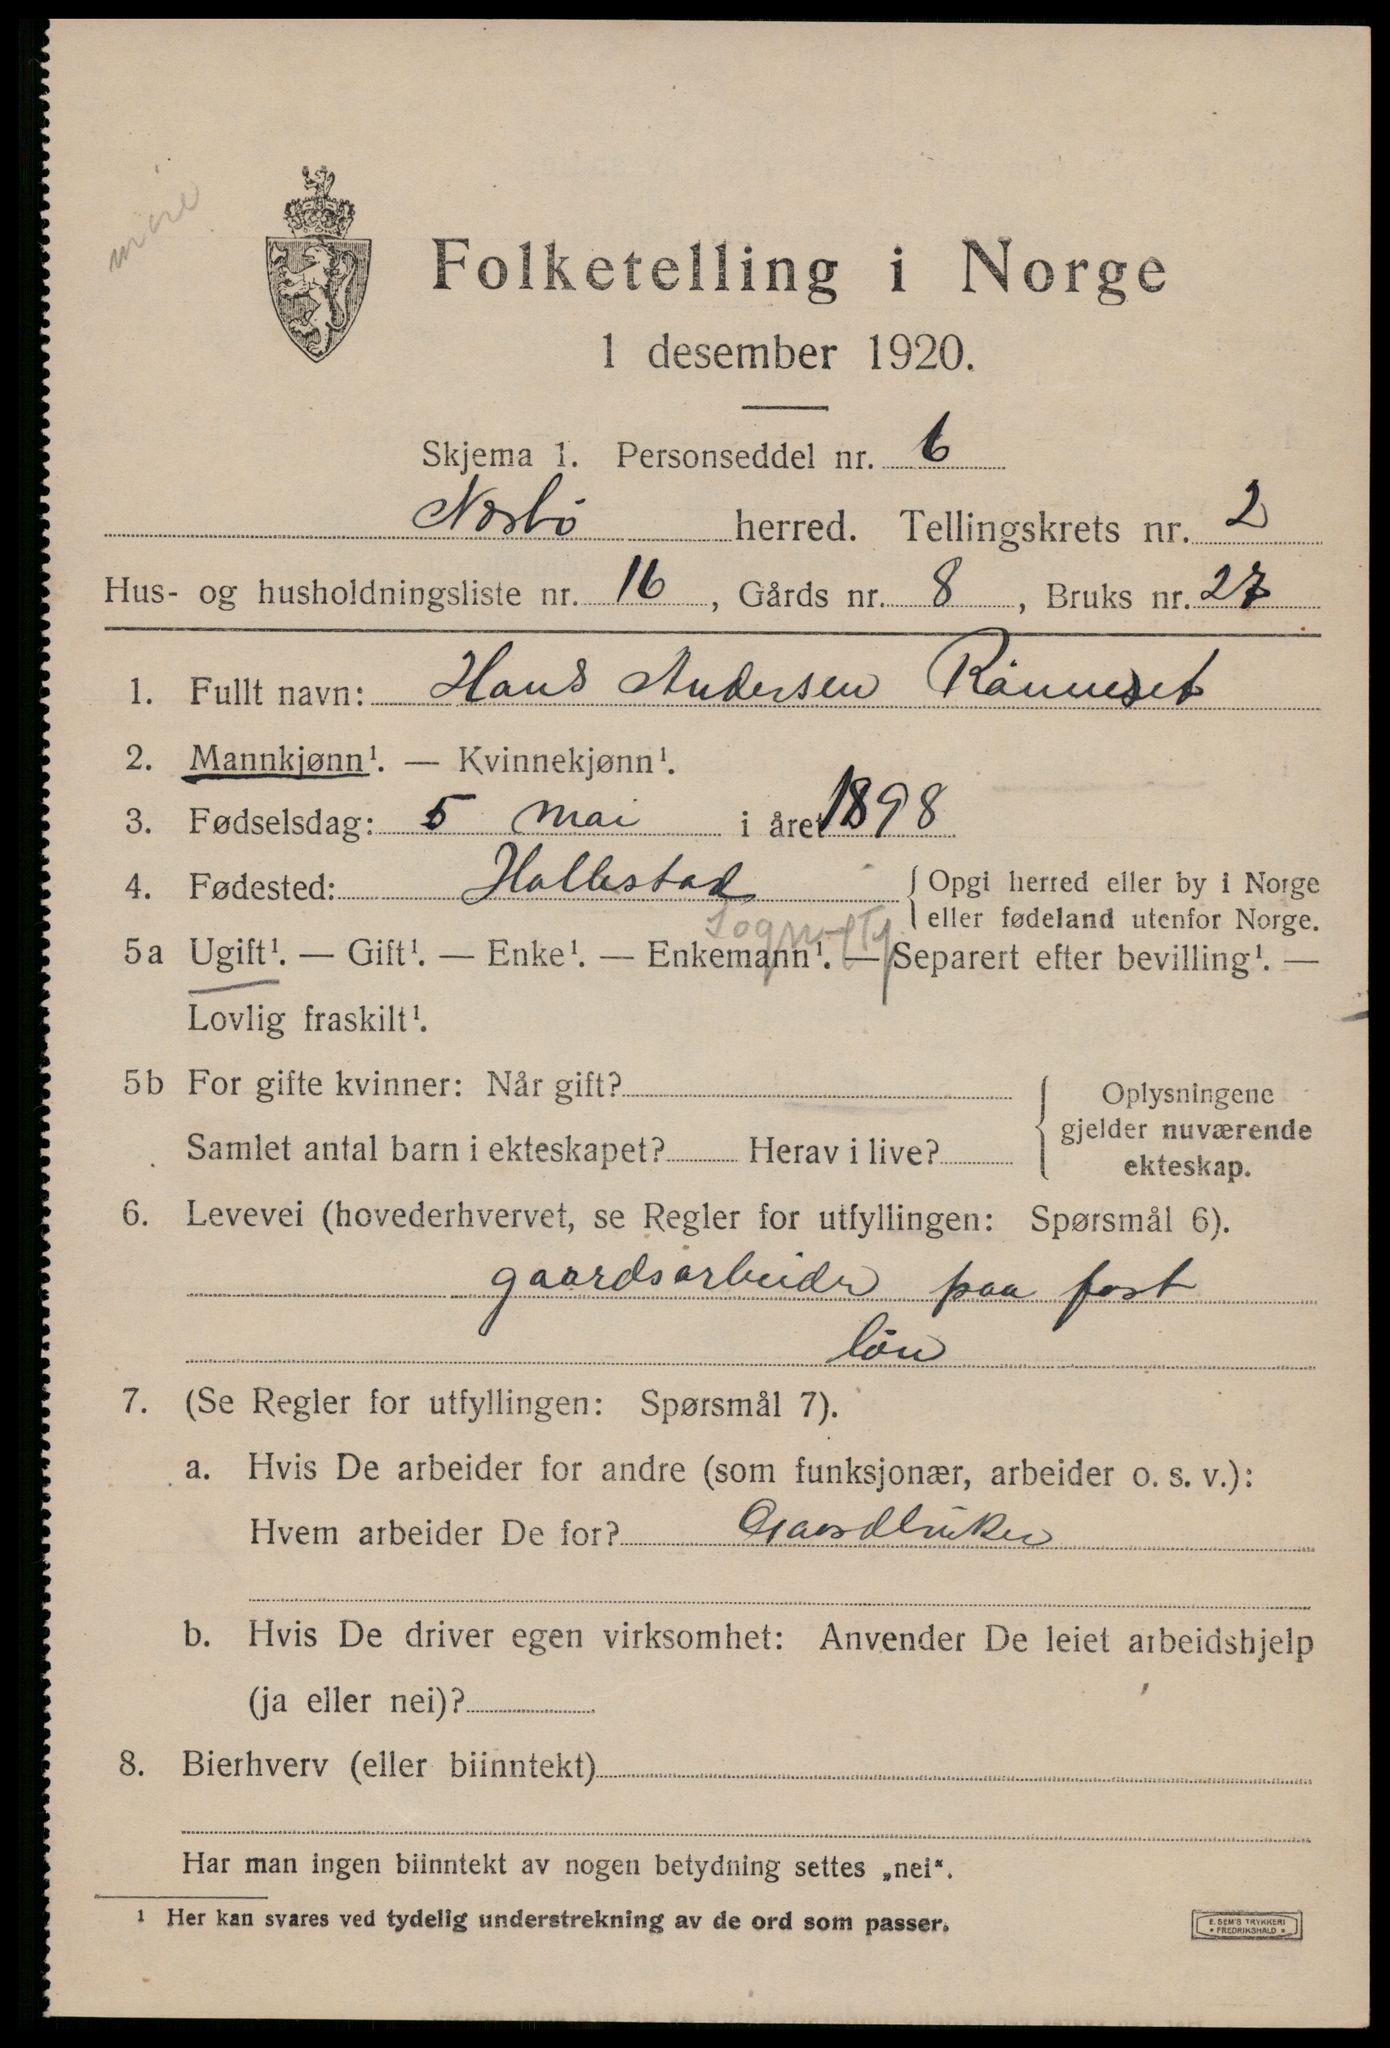 Folketelling i Norge
1 desember 1920.
Skjema 1. Personseddel nr. 6
Nærbö herred. Tellingskrets nr. 2
Hus- og husholdningsliste nr. 16, Gårds nr. 8, Bruks nr. 27
1. Fullt navn: Hans Andersen Rönneset
2. Mannkjønn¹. — Kvinnekjønn¹.
3. Fødselsdag: 5 mai i året 1898
4. Fødested: Hollestad { Opgi herred eller by i Norge
eller fødeland utenfor Norge.
5a Ugift¹. — Gift¹. — Enke¹. — Enkemann¹. — Separert efter bevilling¹. —
Lovlig fraskilt¹.
5b For gifte kvinner: Når gift?
Samlet antal barn i ekteskapet? Herav i live?
{ Oplysningene
gjelder nuværende
ekteskap.
6. Levevei (hovederhvervet, se Regler for utfyllingen: Spørsmål 6).
gaardsarbeider paa fast
lön
7. (Se Regler for utfyllingen: Spørsmål 7).
a. Hvis De arbeider for andre (som funksjonær, arbeider o. s. v.):
Hvem arbeider De for? Gaardbruker
b. Hvis De driver egen virksomhet: Anvender De leiet arbeidshjelp
(ja eller nei)?
8. Bierhverv (eller biinntekt)
Har man ingen biinntekt av nogen betydning settes „nei“.
¹ Her kan svares ved tydelig understrekning av de ord som passer.
E. SEM'S TRYKKERI
* FREDRIKSHALD *